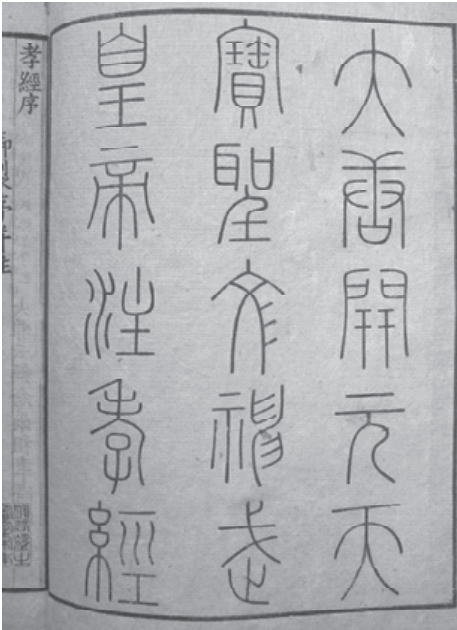 大唐開元天
寶聖文神武
皇帝注孝經
孝經序